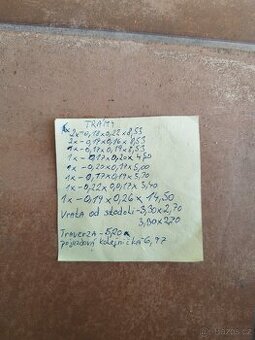 TRÁMY
2x-0,18x0,22x8,53
2x-0,17x0,16x8,53
1x-0,17x0,19x8,53
1x-0,17x0,20x4,60
1x-0,20x0,17x5,00
1x-0,17x0,19x5,70
1x-0,22x0,17x5,40
1x-0,19x0,26x14,50
Vrata od stodoli-3,30x2,70
3,90x2,70
Traverza-5,20
pojezdový kolejnička-6,97